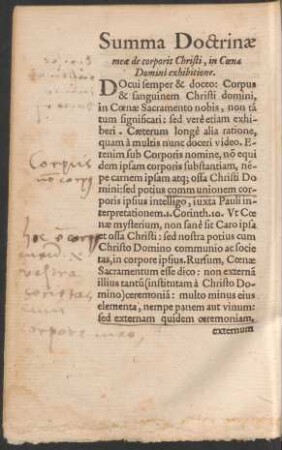 Summa Doctrinæ
meæ de corporis Christi, in Cœna
Domini exhibitione.
DOcui semper & doceo: Corpus
& sanguinem Christi domini,
in Cœnæ Sacramento nobis, non tã
tum significari: sed verè etiam exhi
beri. Cæterum longè alia ratione,
quam à multis nunc doceri video. E-
tenim sub Corporis nomine, nõ equi
dem ipsam corporis substantiam, nẽ-
pe carnem ipsam atq; ossa Christi Do
mini: sed potius communionem cor-
poris ipsius intelligo, iuxta Pauli in-
terpretationem. 1. Corinth. 10. Vt Cœ
næ mysterium, non sanè sit Caro ipsa
et ossa Christi: sed nostra potius cum
Christo Domino communio ac socie
tas, in corpore ipsius. Rursum, Cœnæ
Sacramentum esse dico: non externã
illius tantũ (institutam à Christo Do-
mino) ceremoniã: multo minus eius
elementa, nempe panem aut vinum:
sed externam quidem ceremoniam,
externum
Corpus
corpore meo,